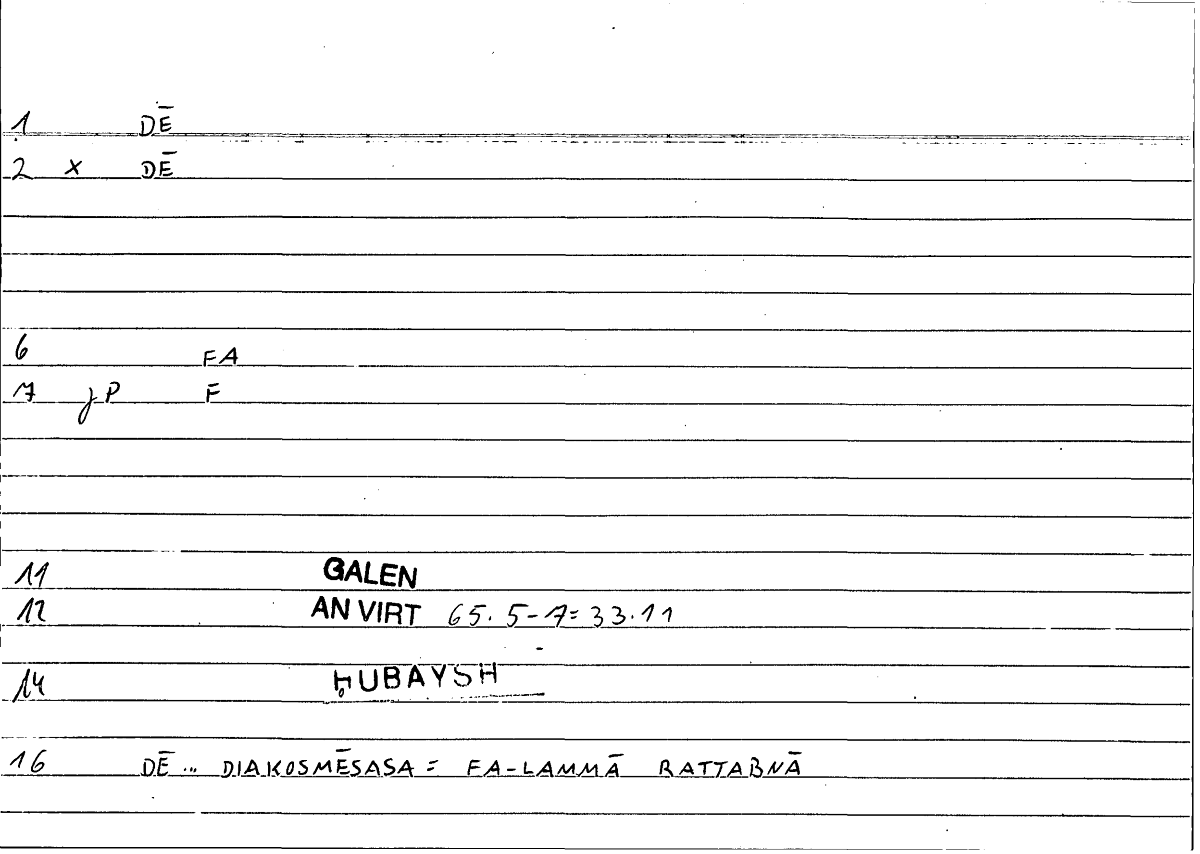 1 DĒ
2 x DĒ
6 FA
7 P F
11 GALEN
12 AN VIRT 65. 5-7=33.11
14 ḤUBAYSH
16 DĒ ... DIAKOSMĒSASA = FA-LAMMĀ RATTABNĀ